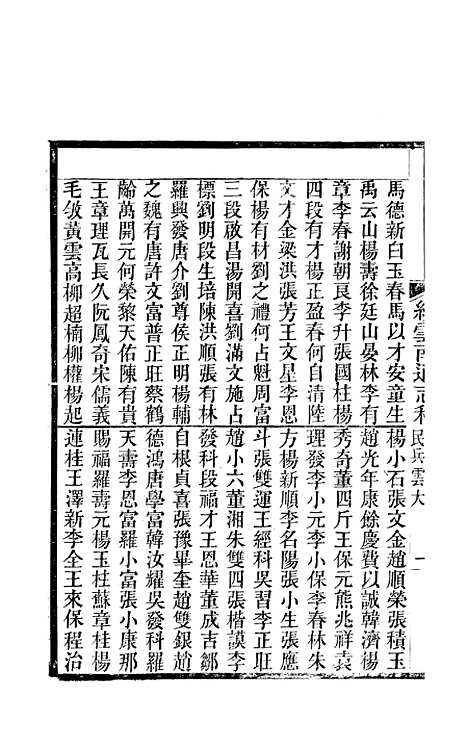 馬德新白玉春馬以才安童生楊小石張文金趙順榮張積玉
禹云山楊壽徐廷山晏林李有趙光年康餘慶費以誠韓濟楊
章李春謝朝良李升張國杜楊秀奇董四斤王保元熊兆祥袁
四段有才楊正盈春何自清陸理發李小元李小保李春林朱
文才金梁洪張芳王文星李恩方楊新順李名陽張小生張應
保楊有材劉之禮何占魁周富斗張雙運王經科吳習李正旺
三段啟昌湯開喜劉滿文施占趙小六董湘朱雙四張楷謨李
標劉明段生培陳洪順張有林發科段福才王恩華董成吉鄒
羅興發唐介劉尊侯正明楊輔自根貞喜張豫畢奎趙雙銀趙
之魏有唐許文富普正旺蔡鶴德鴻唐學富韓汝耀吳發科羅
齡萬開元何榮黎天佑陳有貴天壽李恩富羅小富張小康那
王章理瓦長久阮鳳奇宋儒義賜福羅壽元楊玉柱蘇章桂楊
毛敂黃雲高柳超楠柳權楊起蓮桂王澤新李全王來保程治
續雲南通志稿 民兵 雲大 一